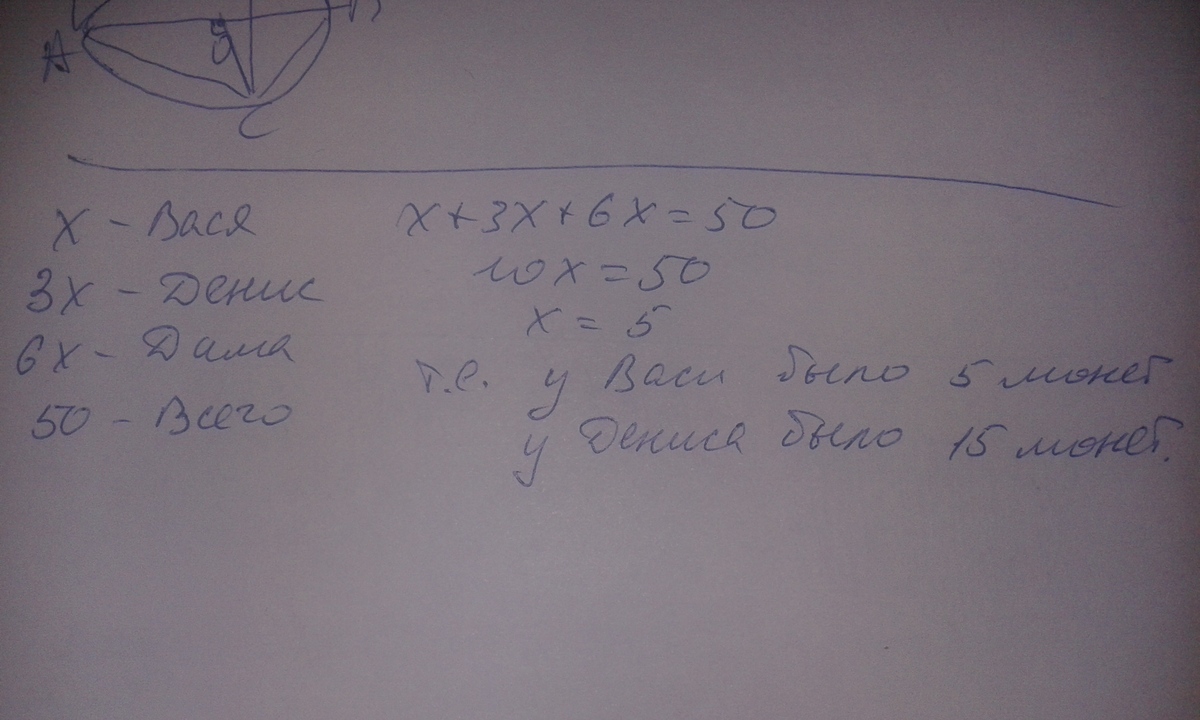 A
C
х - Вася
3х - Денис
6х - Дама
50 - Всего
х+3х+6х=50
10х=50
х = 5
т.е. у Васи было 5 монет
у Дениса было 15 монет.